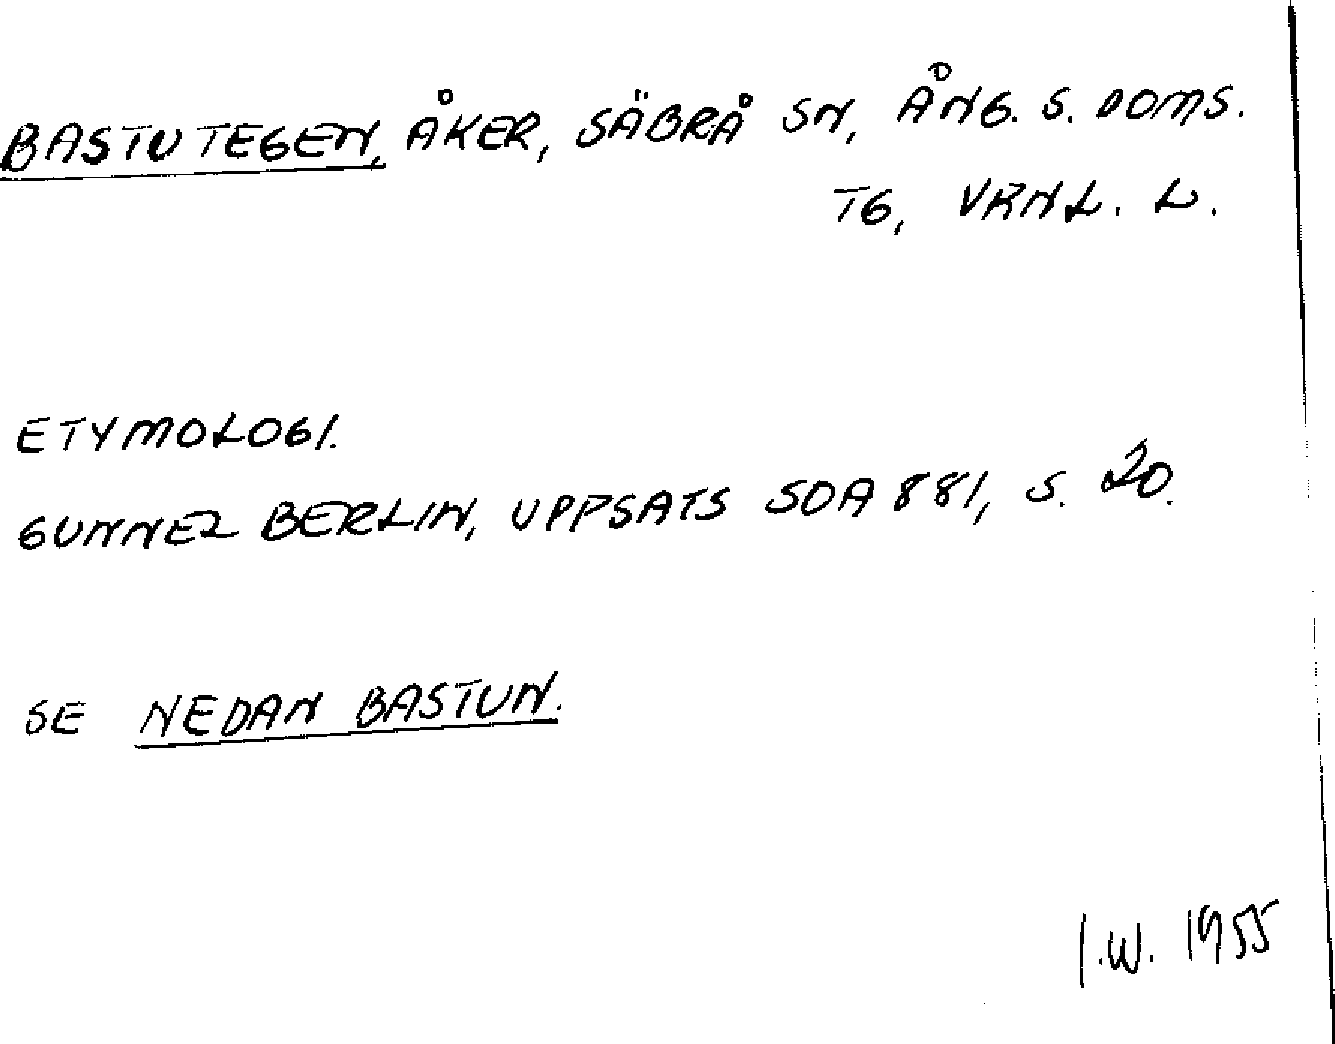 BASTUTEGEN, ÅKER, SÄBRÅ SN, ÅNG. S. DOMS.
TG, VRNL. L.
ETYMOLOGI.
GUNNEL BERLIN, UPPSATS SOA 881, S. 20.
SE NEDAN BASTUN.
I.W. 1955